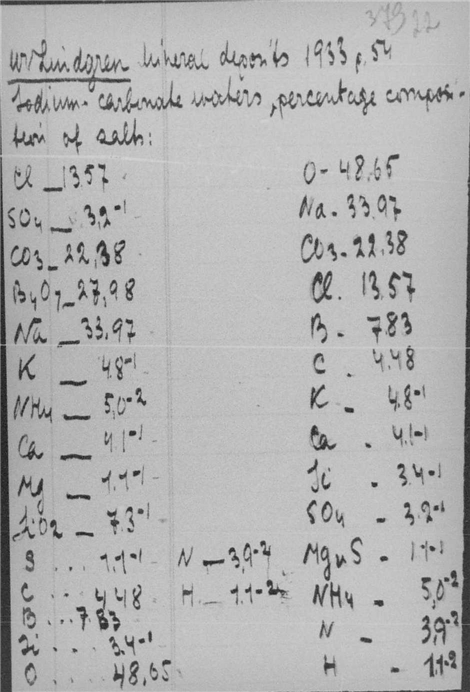 379 22
W. Lindgren Mineral deposits 1933 p. 54
Sodium-carbonate waters, percentage composi-
tion of salts:
Cl _ 13.57
SO4 _ 3,2-1
CO3 _ 22,38
B4O7 _ 27,98
Na _ 33.97
K _ 4.8-1
NH4 _ 5,0-2
Ca _ 4.1-1
Mg _ 1.1-1
SiO2 _ 7.3-1
S ... 1.1-1
C ... 4.48
B ... 7.83
Si ... 3.4-1
O ... 48,65
N _ 3,9-2
H _ 1.1-2
O - 48,65
Na - 33.97
CO3 - 22.38
Cl. 13.57
B - 7.83
C - 4.48
K - 4.8-1
Ca - 4.1-1
Si - 3.4-1
SO4 - 3.2-1
Mg u S - 1.1-1
NH4 - 5,0-2
N - 3,9-2
H - 1.1-2